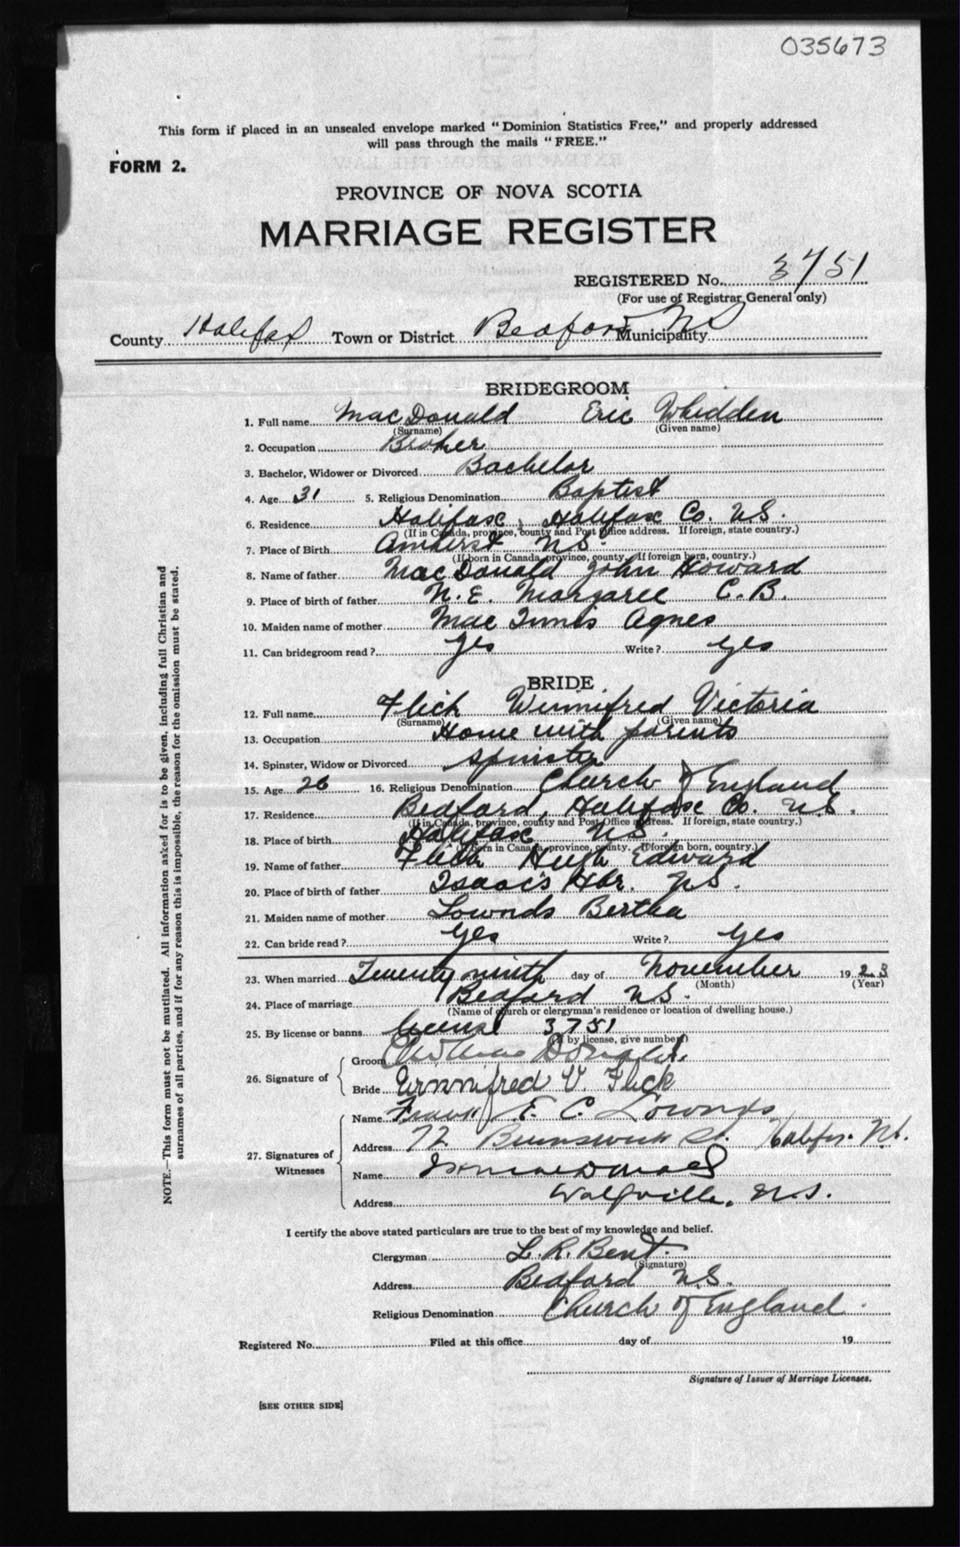 035673
This form if placed in an unsealed envelope marked "Dominion Statistics Free," and properly addressed
will pass through the mails "FREE."
FORM 2.
PROVINCE OF NOVA SCOTIA
MARRIAGE REGISTER
REGISTERED No. 3751
(For use of Registrar General only)
County Halifax Town or District Bedford NS Municipality
BRIDEGROOM
1. Full name MacDonald Eric Whidden
(Surname) (Given name)
2. Occupation Broker
3. Bachelor, Widower or Divorced Bachelor
4. Age 31 5. Religious Denomination Baptist
6. Residence Halifax, Halifax Co. N.S.
(If in Canada, province, county and Post Office address. If foreign, state country.)
7. Place of Birth Amherst NS.
(If born in Canada, province, county. If foreign born, country.)
8. Name of father MacDonald John Howard
9. Place of birth of father N.E. Margaree C.B.
10. Maiden name of mother MacInnis Agnes
11. Can bridegroom read? yes Write? yes
BRIDE
12. Full name Flick Winnifred Victoria
(Surname) (Given name)
13. Occupation Home with parents
14. Spinster, Widow or Divorced Spinster
15. Age 26 16. Religious Denomination Church of England
17. Residence Bedford, Halifax Co. N.S.
(If in Canada, province, county and Post Office address. If foreign, state country.)
18. Place of birth Halifax N.S.
(If born in Canada, province, county. If foreign born, country.)
19. Name of father Flick Hugh Edward
20. Place of birth of father Isaac's Hbr. N.S.
21. Maiden name of mother Lownds Bertha
22. Can bride read? yes Write? yes
23. When married Twenty ninth day of November 1923
(Month) (Year)
24. Place of marriage Bedford N.S.
(Name of church or clergyman's residence or location of dwelling house.)
25. By license or banns License 3751
(If by license, give number)
26. Signature of
Groom Donald
Bride Winnifred V Flick
27. Signatures of Witnesses
Name Frank E. C. Lownds
Address 72 Brunswick St. Halifax NS.
Name MacDonald
Address Wolfville, N.S.
I certify the above stated particulars are true to the best of my knowledge and belief.
Clergyman L. R. Bent.
(Signature)
Address Bedford N.S.
Religious Denomination Church of England.
Registered No. Filed at this office day of 19
Signature of Issuer of Marriage Licenses.
[SEE OTHER SIDE]
NOTE.—This form must not be mutilated. All information asked for is to be given, including full Christian and
surnames of all parties, and if for any reason this is impossible, the reason for the omission must be stated.